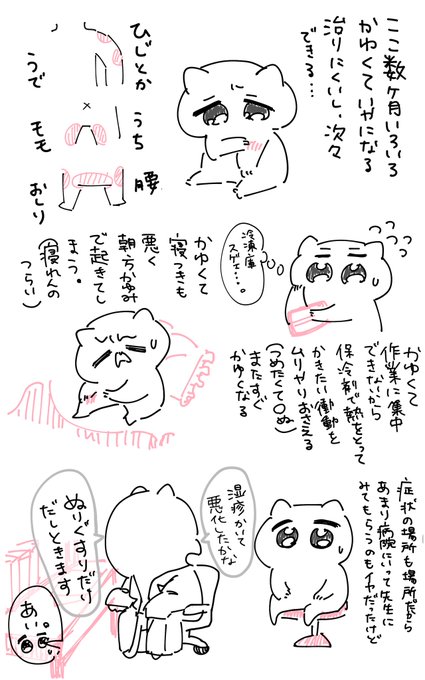 ここ数ヶ月いろいろ
かゆくていやになる
治りにくいし、次々
できる…
ひじとか
うで
うち
モモ
腰
おしり
冷凍庫
スゲェ…。
かゆくて
寝つきも
悪く
朝方かゆみ
で起きてし
まう。
(寝れんの
つらい)
かゆくて
作業に集中
できないから
保冷剤で熱をとって
かきたい衝動を
ムリヤリおさえる
(つめたくて〇ぬ)
またすぐ
かゆくなる
症状の場所も場所だから
あまり病院にいって先生に
みてもらうのもイヤだったけど
湿疹かいて
悪化したかな
ぬりぐすりだけ
だしときます
あい。